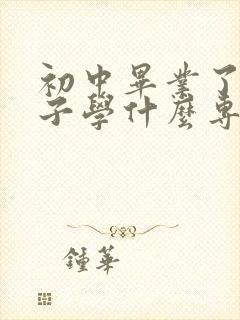 初中畢業了
子學什麼專
鍾華